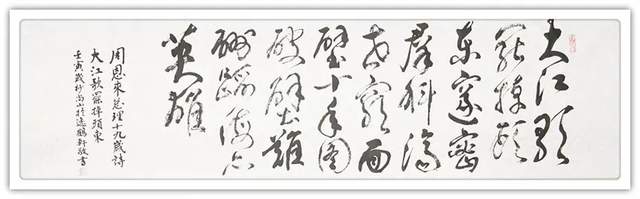 大江歌
罷掉頭
東邃密
羣科濟
世窮面
壁十年圖
破壁難
酬蹈海亦
英雄
周恩來总理十九歲詩
大江歌罷掉頭東
壬寅歲杪尚山於鶴軒敬書